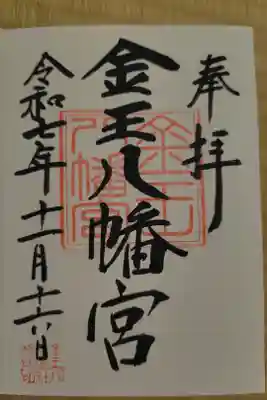 奉拝
金王八幡宮
令和七年十一月十六日